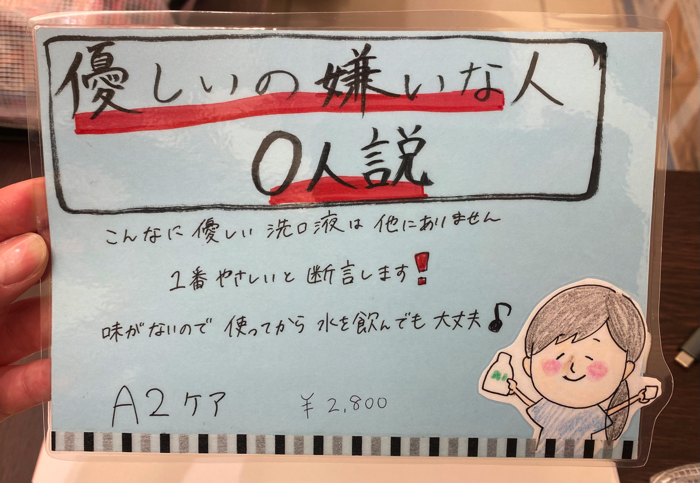 優しいの嫌いな人
0人説
こんなに優しい洗口液は他にありません
1番やさしいと断言します!
味がないので使ってから水を飲んでも大丈夫♪
A2ケア ¥2,800